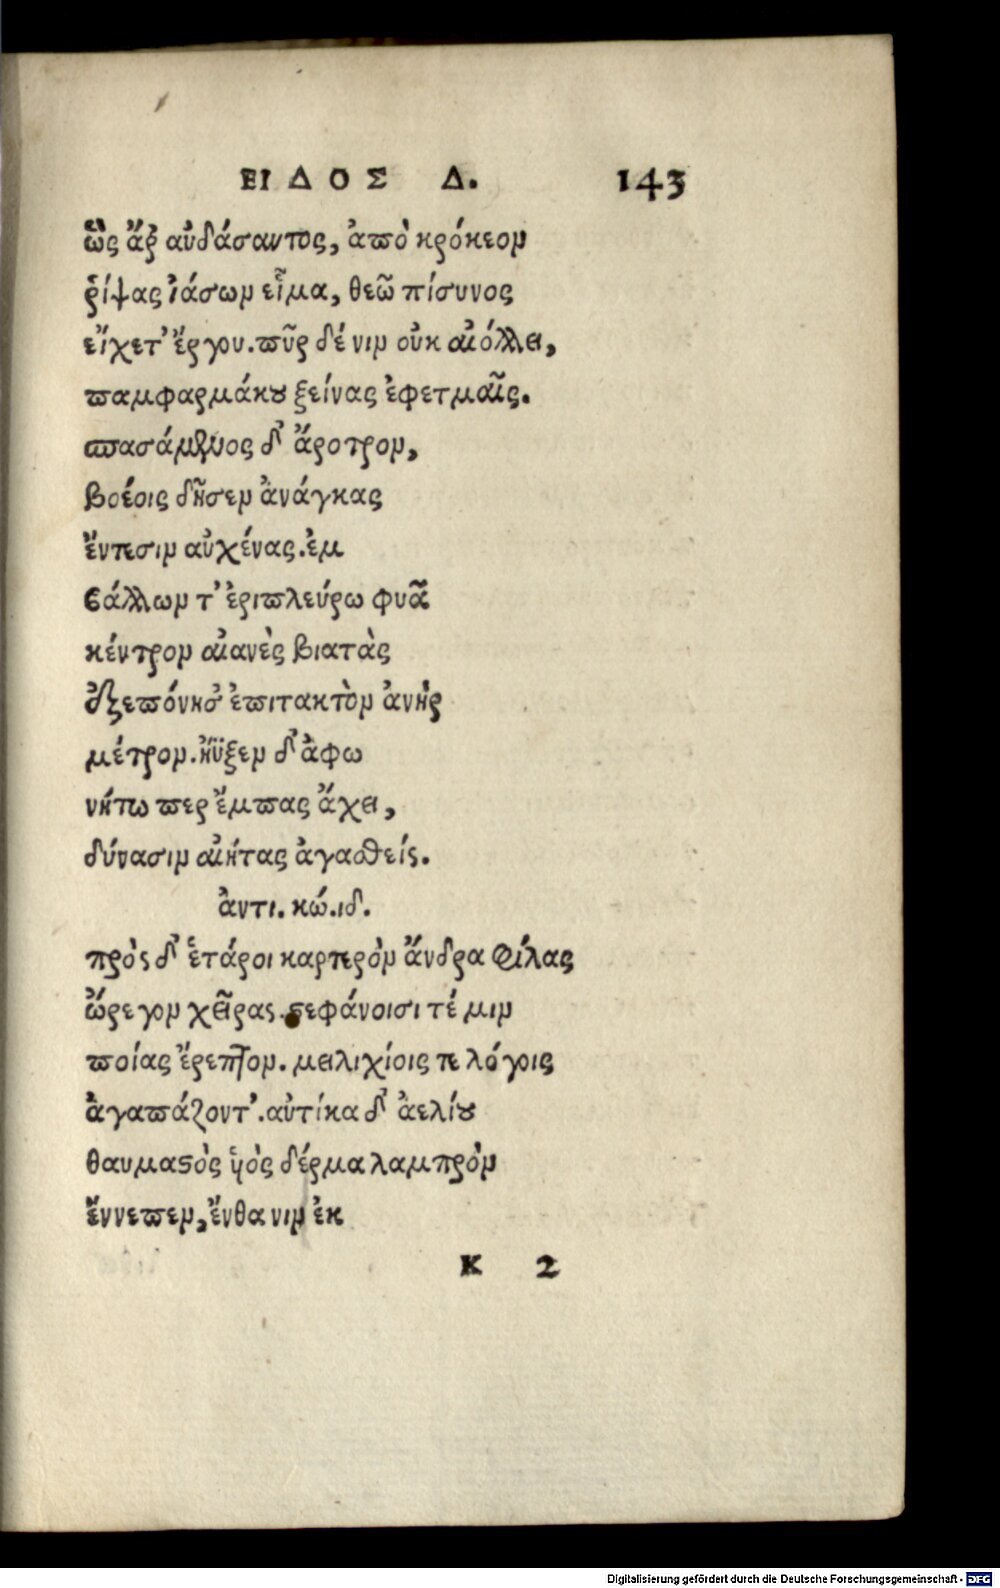 ΕΙΔΟΣ Δ. 143
ὣς ἄρ αὐδάσαντος, ἀπὸ κρόκεον
ῥίψας ἰάσων εἷμα, θεῶ πίσυνος
εἴχετ' ἔργου. πῦρ δέ νιν οὐκ αἰόλλει,
παμφαρμάκου ξείνας ἐφετμαῖς.
σπασάμενος δ' ἄροτρον,
βοέοις δῆσεν ἀνάγκας
ἔντεσιν αὐχένας. ἐμ
βάλλων τ' ἐριπλεύρω φυᾶ
κέντρον αἰανὲς βιατὰς
ἐξεπόνησ' ἐπιτακτὸν ἀνὴρ
μέτρον. ἤϋξεν δ' ἀφω
νήτω περ ἔμπας ἄχει,
δύνασιν αἰήτας ἀγασθείς.
ἀντι. κώ. ιδ.
πρὸς δ' ἑτάροι καρτερὸν ἄνδρα φίλας
ὤρεγον χεῖρας. στεφάνοισι τέ μιν
ποίας ἔρεπτον. μειλιχίοις τε λόγοις
ἀγαπάζοντ'. αὐτίκα δ' ἀελίου
θαυμαστὸς ὑὸς δέρμα λαμπρὸν
ἔννεπεν, ἔνθα νιν ἐκ
K 2
Digitalisierung gefördert durch die Deutsche Forschungsgemeinschaft - DFG